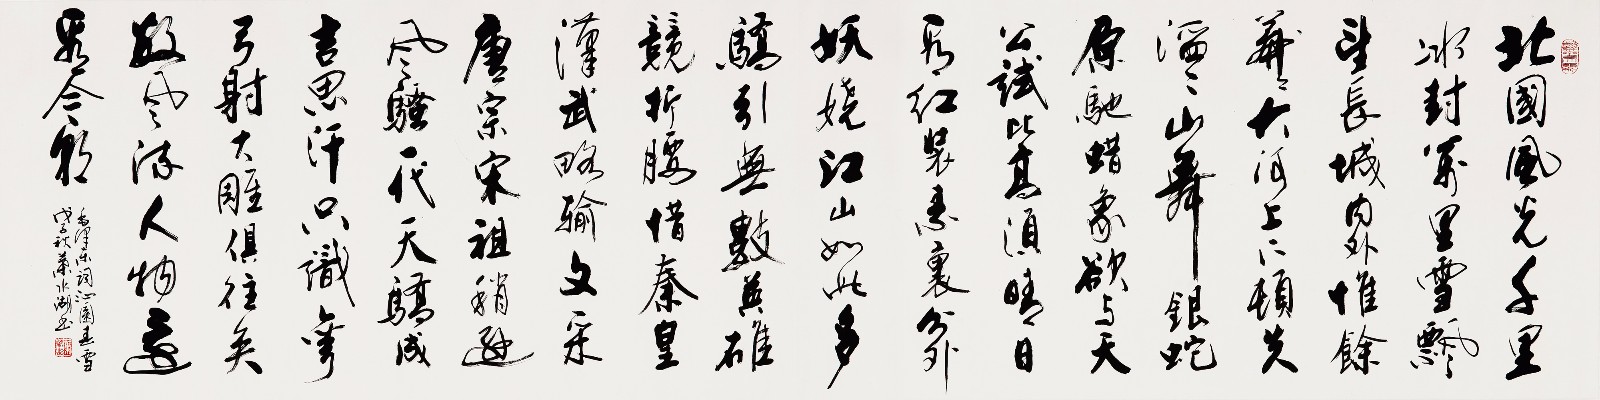 北國風光千里
冰封萬里雪飄
望長城內外惟餘
莽々大河上下頓失
滔々山舞銀蛇
原馳蜡象欲与天
公試比高須晴日
看紅裝素裹分外
妖嬈江山如此多
驕引無數英雄
競折腰惜秦皇
漢武略輸文采
唐宗宋祖稍遜
風騷一代天驕成
吉思汗只識彎
弓射大雕俱往矣
數風流人物還
看今朝
毛澤東詞沁園春雪
戊子秋葉水湖书